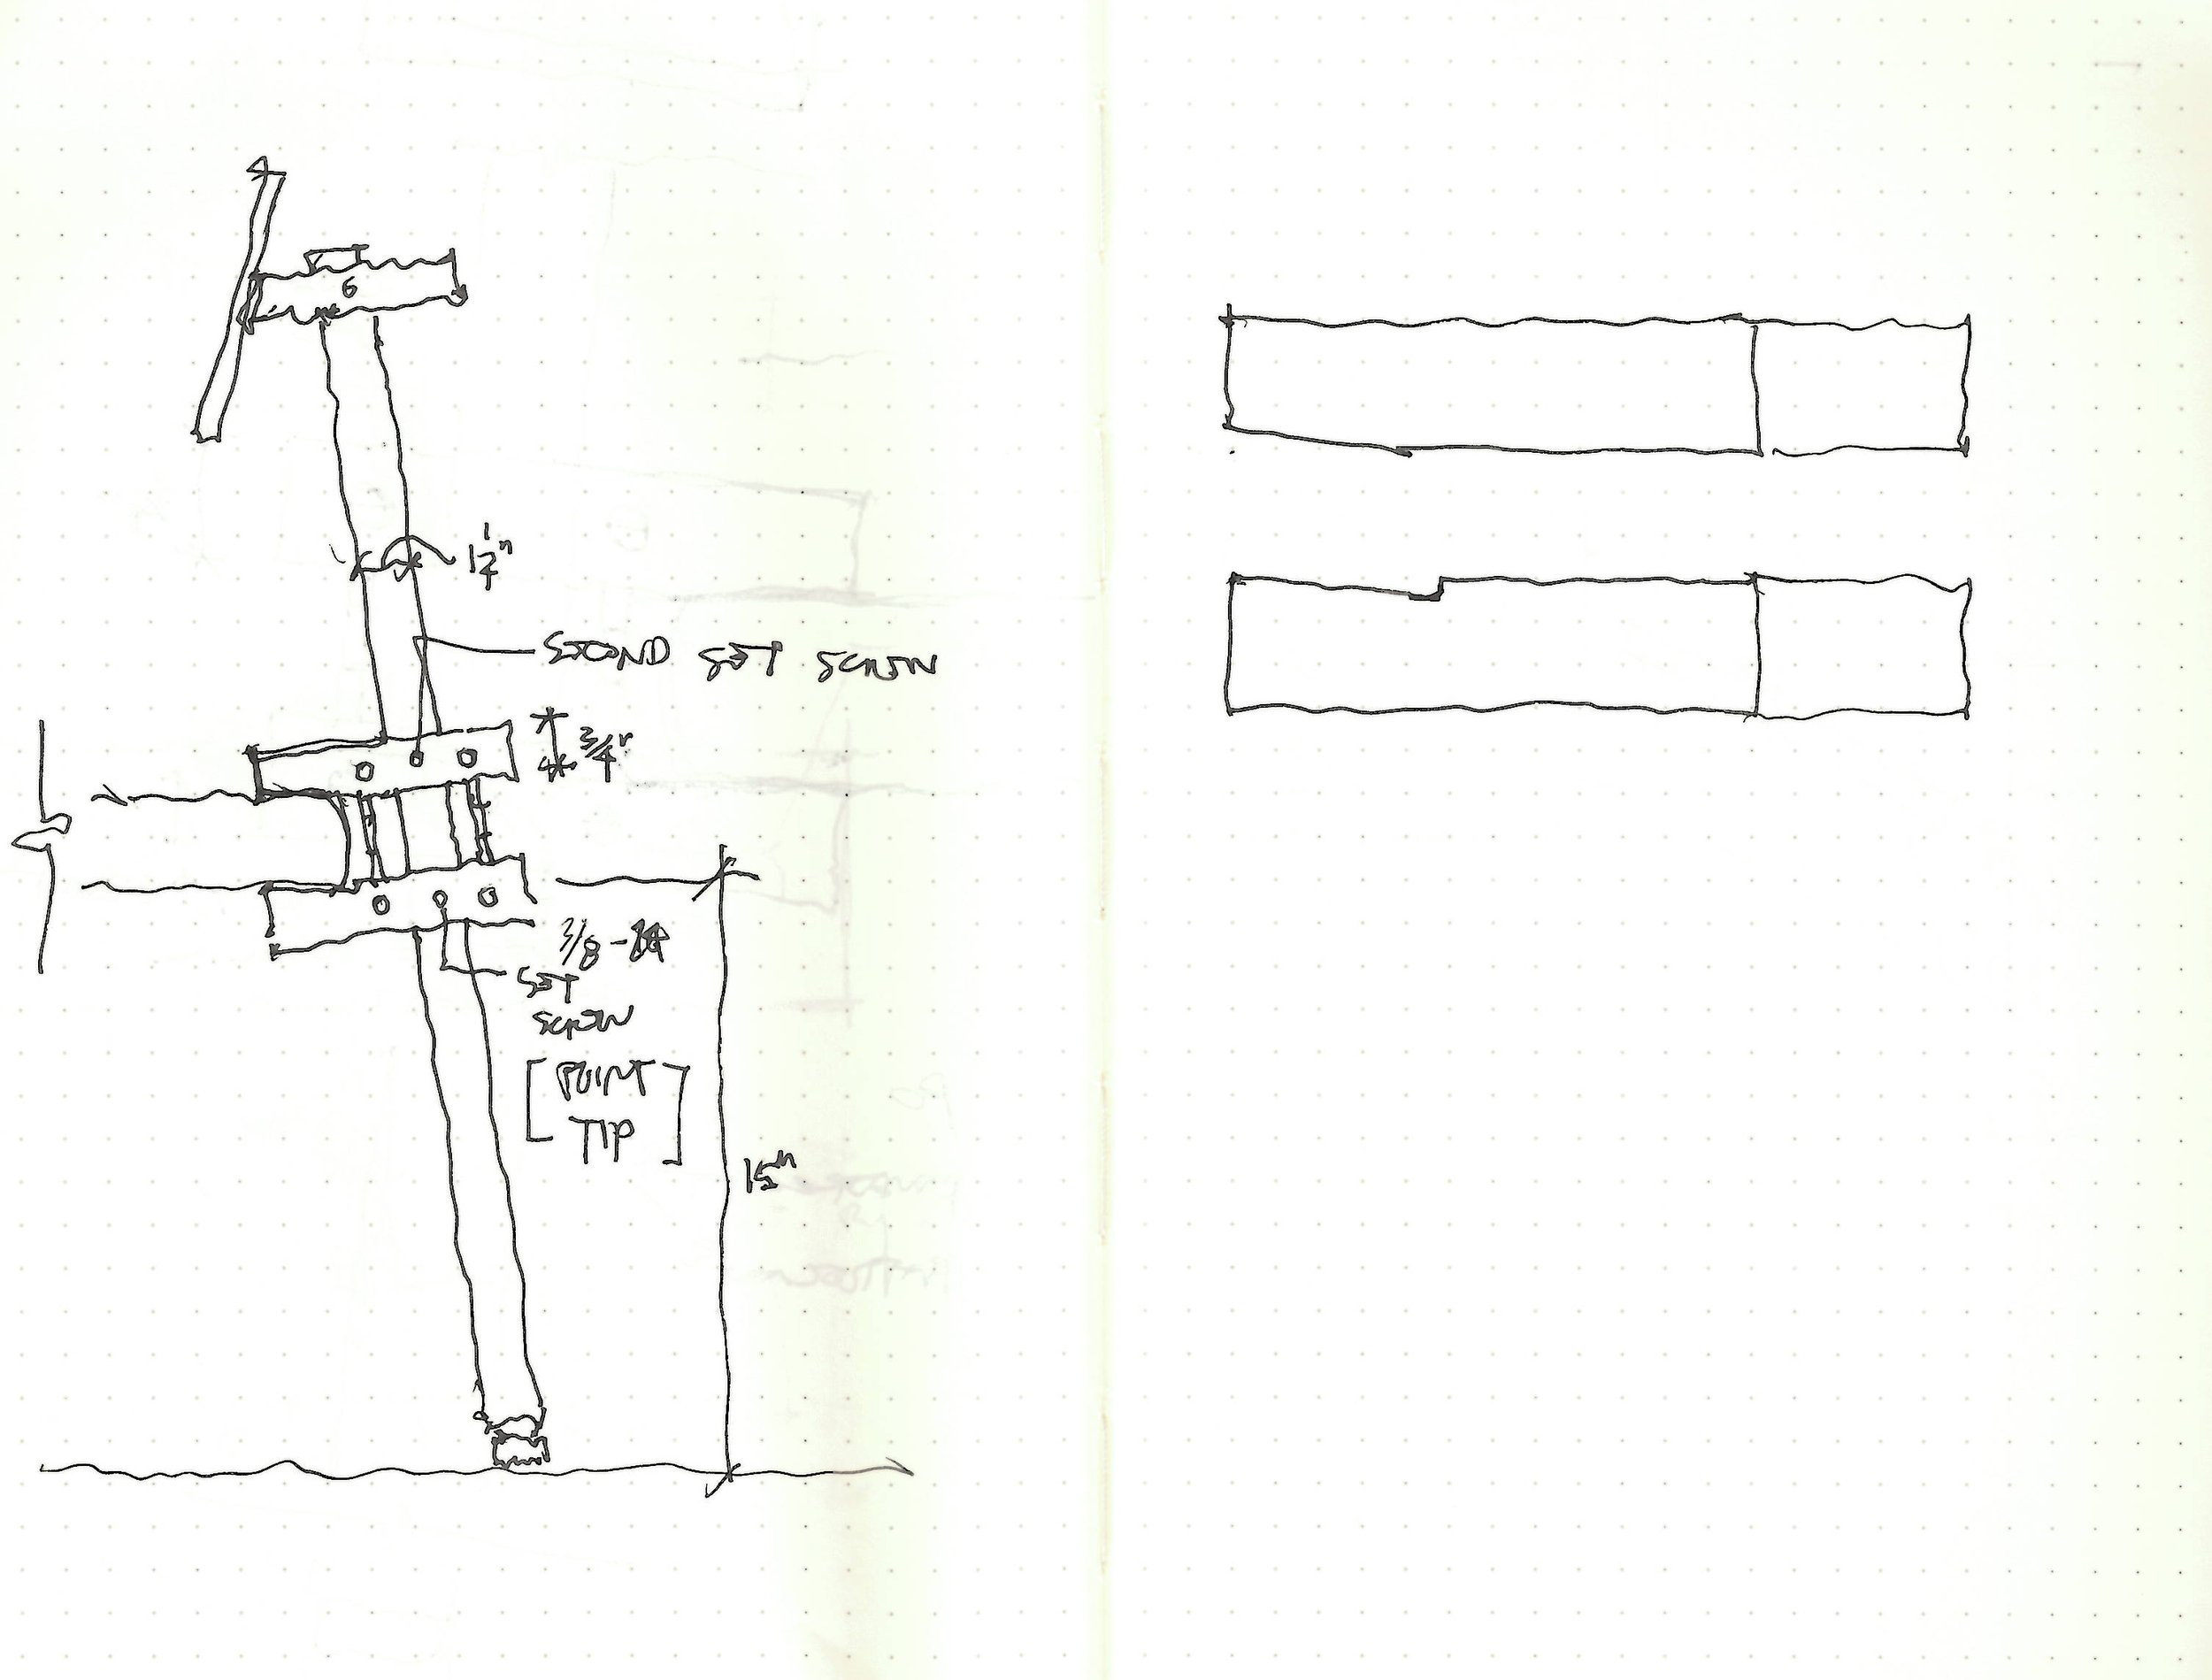 6
1 1/4"
SECOND SET SCREW
3/4"
3/8 -
SET
SCREW
[POINT
TIP]
15"